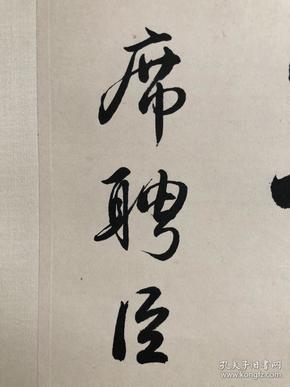 席聘臣
孔夫子旧书网